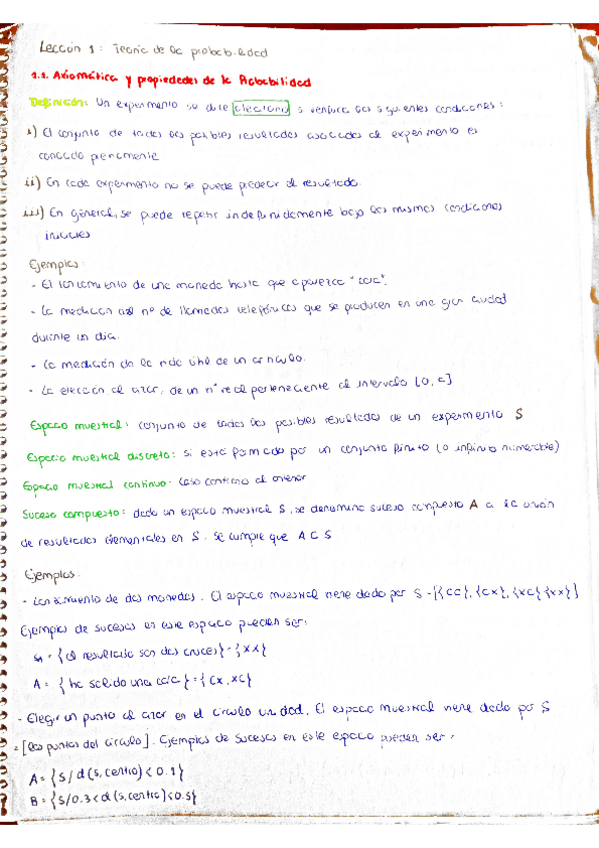 Lección 1: Teoría de la probabilidad
1.1. Axiomática y propiedades de la Probabilidad
Definición: Un experimento se dice aleatorio si verifica las siguientes condiciones:
i) El conjunto de todos los posibles resultados asociados al experimento es
conocido previamente
ii) En cada experimento no se puede predecir el resultado.
iii) En general, se puede repetir indefinidamente bajo las mismas condiciones
iniciales
Ejemplos:
- El lanzamiento de una moneda hasta que aparezca "cara".
- La medición del nº de llamadas telefónicas que se producen en una gran ciudad
durante un día.
- La medición de la vida útil de un artículo.
- La elección al azar, de un nº real perteneciente al intervalo [0, a]
Espacio muestral: conjunto de todos los posibles resultados de un experimento S
Espacio muestral discreto: si está formado por un conjunto finito (o infinito numerable)
Espacio muestral continuo: caso contrario al anterior
Suceso compuesto: dado un espacio muestral S, se denomina suceso compuesto A a la unión
de resultados elementales en S. Se cumple que A ⊂ S
Ejemplos:
- Lanzamiento de dos monedas. El espacio muestral viene dado por S = [{CC}, {CX}, {XC} {XX}]
Ejemplos de sucesos en este espacio pueden ser:
= {el resultado son dos cruces} = {XX}
A = {ha salido una cara} = {CX, XC}
- Elegir un punto al azar en el círculo unidad. El espacio muestral viene dado por S
= [los puntos del círculo]. Ejemplos de sucesos en este espacio pueden ser:
A = {S/d(s, centro) < 0.1}
B = {S/0.3 < d(s, centro) < 0.5}